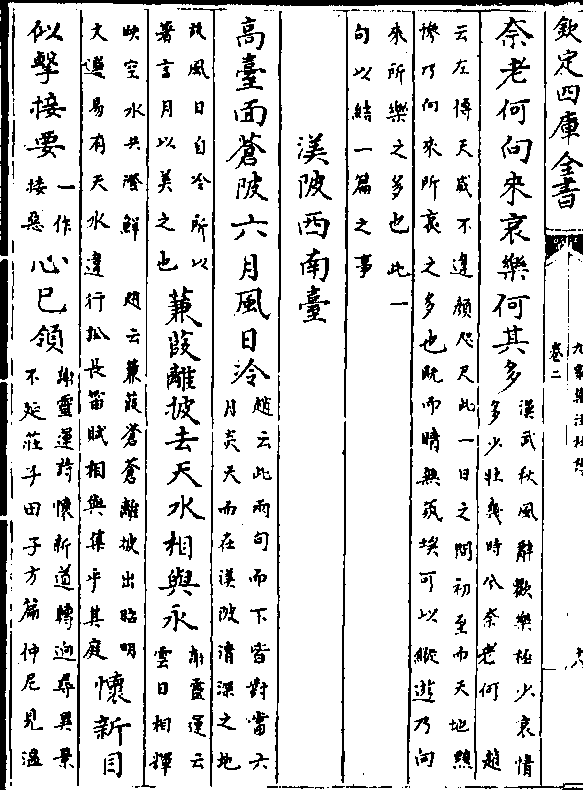 欽定四庫全書
九家集注杜詩
卷二
奈老何向來哀樂何其多
漢武秋風辭歡樂極兮哀情
多少壯幾時兮奈老何 趙
云左傳天威不違顏咫尺此一日之間初至而天地黤
慘乃向來所哀之多也既而晴無氛埃可以縱遊乃向
來所樂之多也此一
句以結一篇之事
渼陂西南臺
高臺面蒼陂六月風日冷
趙云此兩句而下皆對當六
月炎天而在渼陂清深之地
故風日自冷所以
著言月以美之也
蒹葭離披去天水相與永
謝靈運云
雲日相揮
映空水共澄鮮 趙云蒹葭蒼蒼離披出昭明
文選易有天水違行孤長笛賦相與集乎其庭
懷新目
似擊接要
一作
接惡
心已領
謝靈運詩懷新道轉迥尋異景
不延莊子田子方篇仲尼見溫